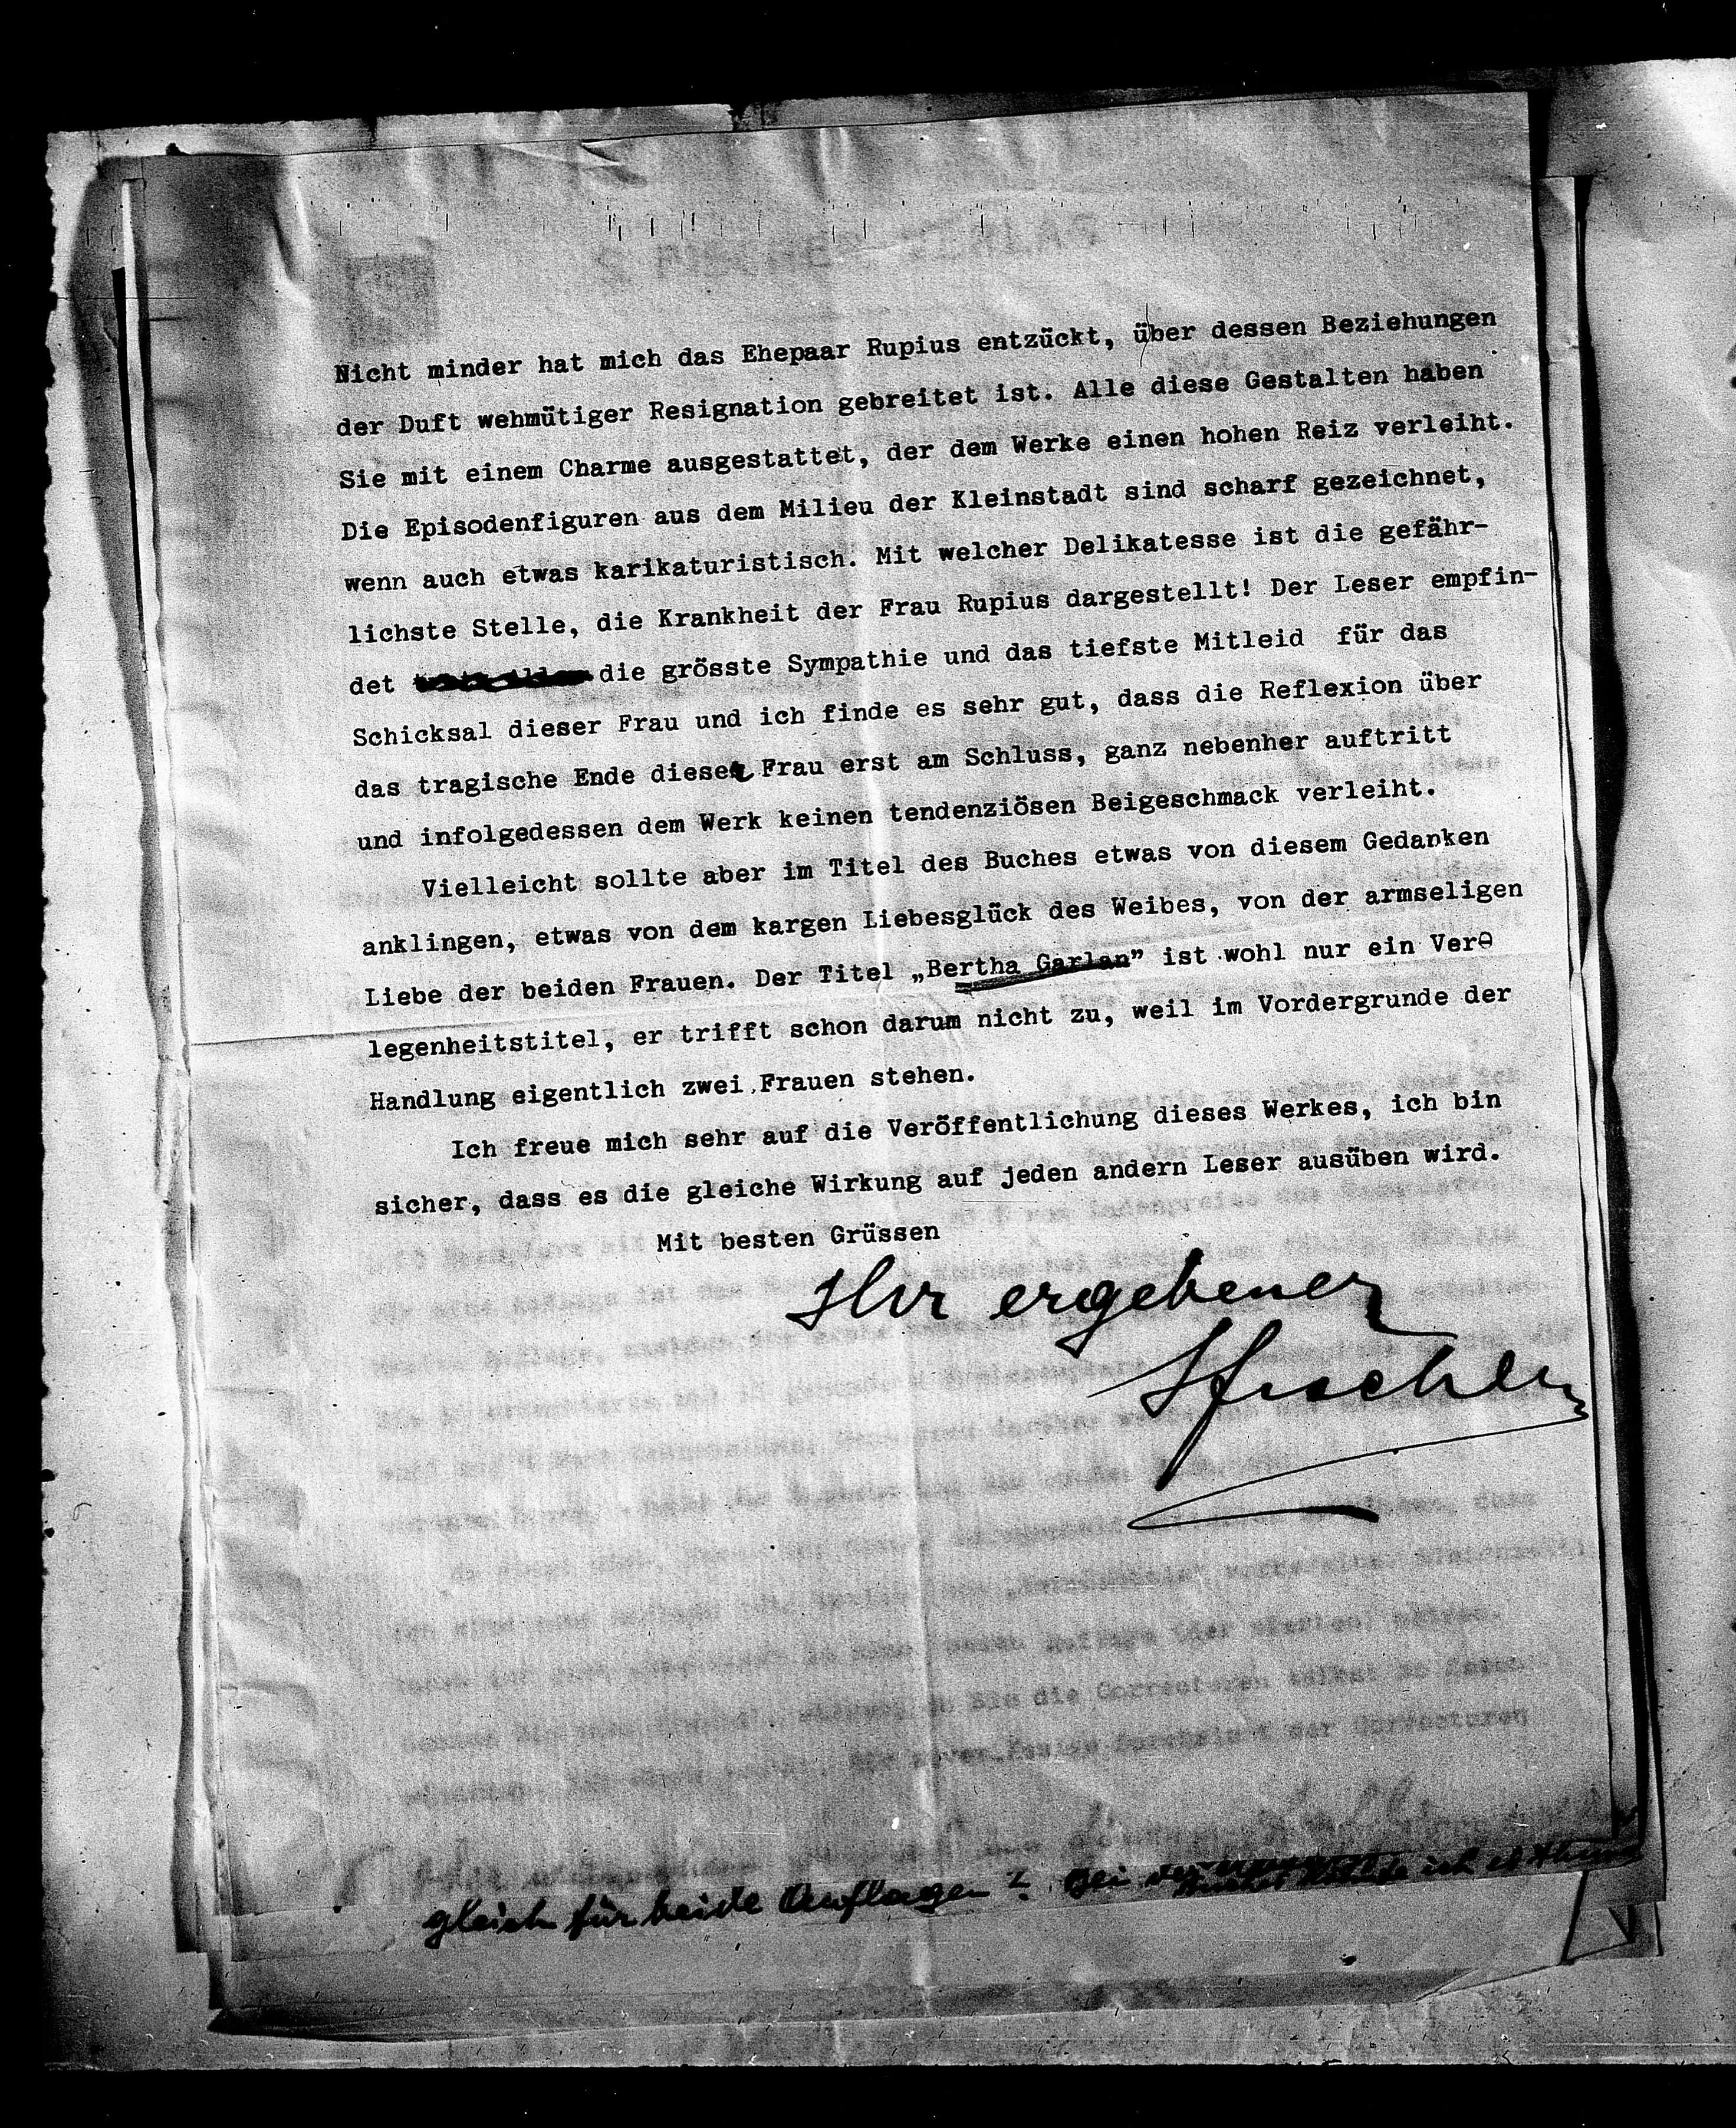 Nicht minder hat mich das Ehepaar Rupius entzückt, über dessen Beziehungen
der Duft wehmütiger Resignation gebreitet ist. Alle diese Gestalten haben
Sie mit einem Charme ausgestattet, der dem Werke einen hohen Reiz verleiht.
Die Episodenfiguren aus dem Milieu der Kleinstadt sind scharf gezeichnet,
wenn auch etwas karikaturistisch. Mit welcher Delikatesse ist die gefähr-
lichste Stelle, die Krankheit der Frau Rupius dargestellt! Der Leser empfin-
det die grösste Sympathie und das tiefste Mitleid für das
Schicksal dieser Frau und ich finde es sehr gut, dass die Reflexion über
das tragische Ende dieser Frau erst am Schluss, ganz nebenher auftritt
und infolgedessen dem Werk keinen tendenziösen Beigeschmack verleiht.
Vielleicht sollte aber im Titel des Buches etwas von diesem Gedanken
anklingen, etwas von dem kargen Liebesglück des Weibes, von der armseligen
Liebe der beiden Frauen. Der Titel „Bertha Garlan” ist wohl nur ein Ver-
legenheitstitel, er trifft schon darum nicht zu, weil im Vordergrunde der
Handlung eigentlich zwei Frauen stehen.
Ich freue mich sehr auf die Veröffentlichung dieses Werkes, ich bin
sicher, dass es die gleiche Wirkung auf jeden andern Leser ausüben wird.
Mit besten Grüssen
Ihr ergebener
SFischer
gleich für beide Auflagen? Bei der ich es